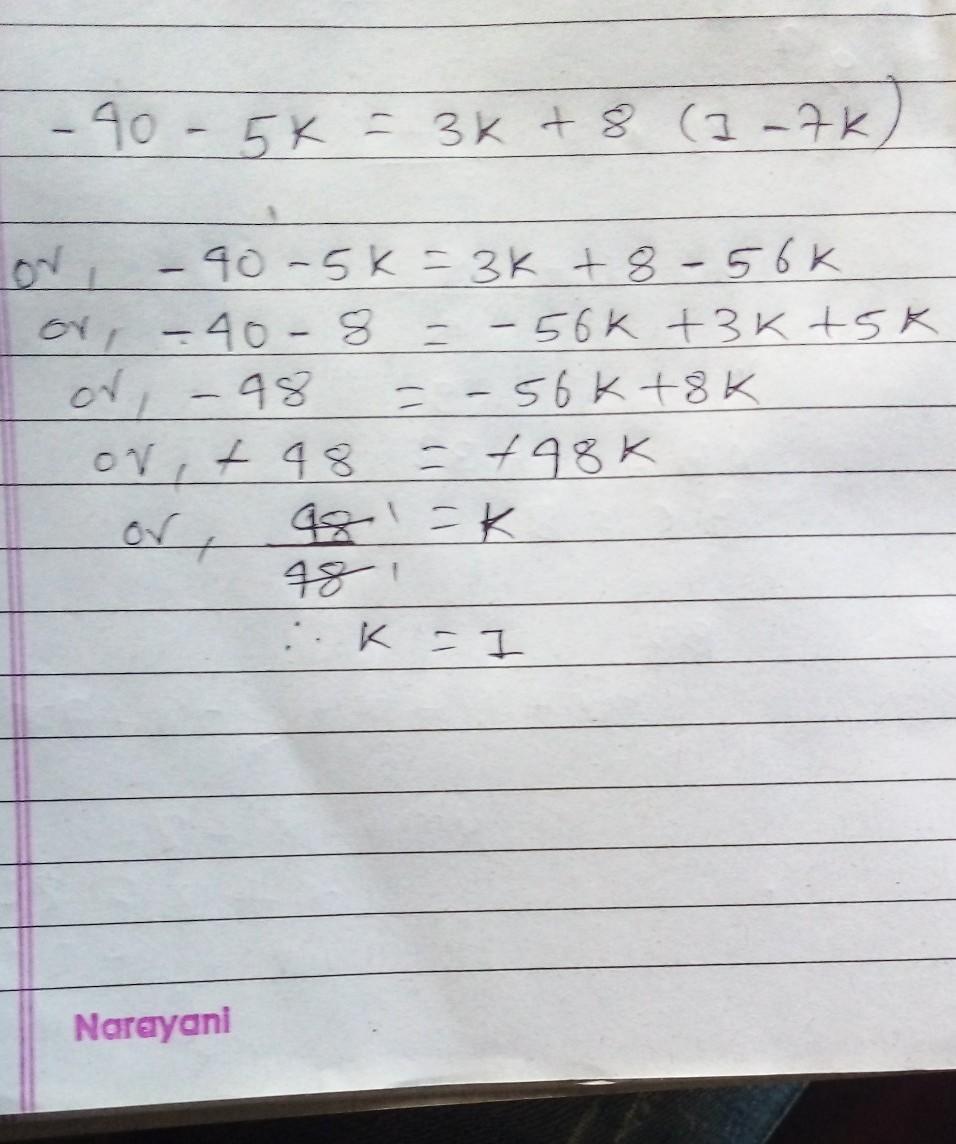 -40 - 5K = 3K + 8 (1 - 7K)
or, -40 - 5K = 3K + 8 - 56K
or, -40 - 8 = -56K + 3K + 5K
or, -48 = -56K + 8K
or, + 48 = +48K
or, 48 1 = K
48 1
∴ K = 1
Narayani